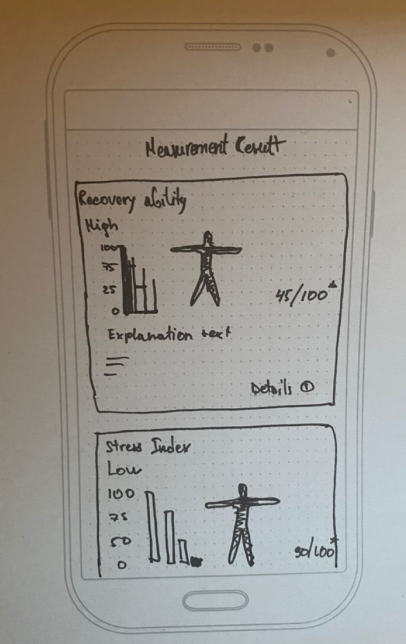 Measurement Result
Recovery ability
High
100
75
25
0
45/100
Explanation text
Details
Stress Index
Low
100
75
50
0
90/100